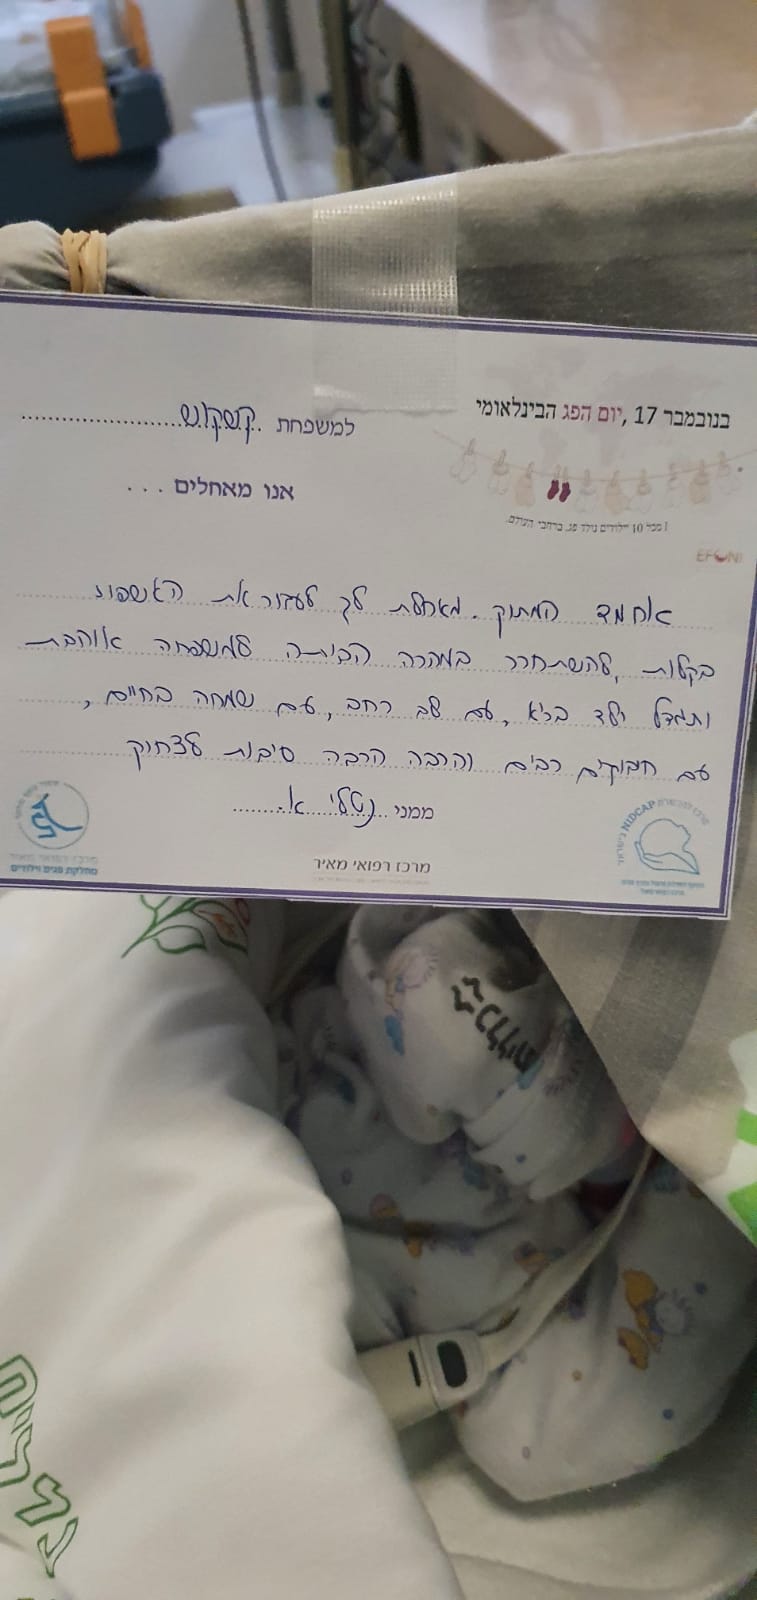 בנובמבר 17, יום הפג הבינלאומי
למשפחת קשקוש
אנו מאחלים ...
1 מכל 10 יילודים נולד פג, ברחבי העולם.
EFCNI
אחמד המתוק. מאחלת לך לעבור את האשפוז
בקלות, להשתחרר במהרה הביתה למשפחה אוהבת
ותגדל ילד בריא, עם לב רחב, עם שמחה בחיים,
עם חיבוקים רבים והרבה הרבה סיבות לצחוק
ממני נטלי א.
מרכז רפואי מאיר
מרכז רפואי מאיר
מחלקת פגים וילודים
NIDCAP
כללית